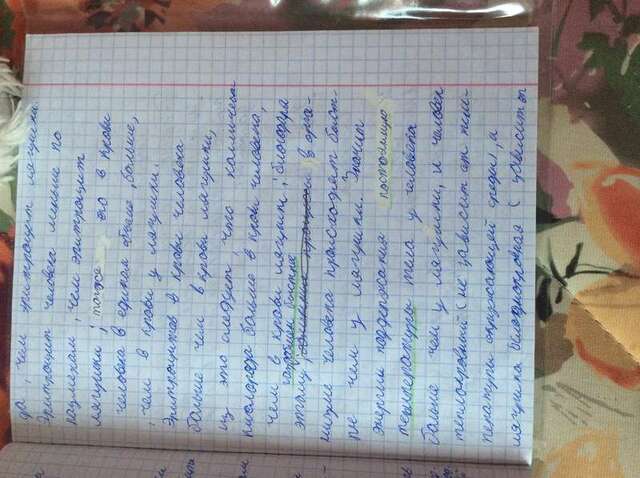 да, чем эритроцит лягушки.
Эритроцит человека меньше по
размерам, чем эритроцит
лягушки, также его в крови
человека в единичн объёме больше,
чем в крови у лягушки.
Эритроцитов в крови человека
больше чем в крови лягушки,
из это следует, что количества
кислорода больше в крови человека,
чем в крови лягушки, благодаря
этому в орга-
низме человека происходят быст-
рее чем у лягушки. Значит
энергии поддержания постоянную
температуры тела у человека
больше чем у лягушки, и человек
теплокровный (не зависит от тем-
пературы окружающей среды), а
лягушка (зависит от